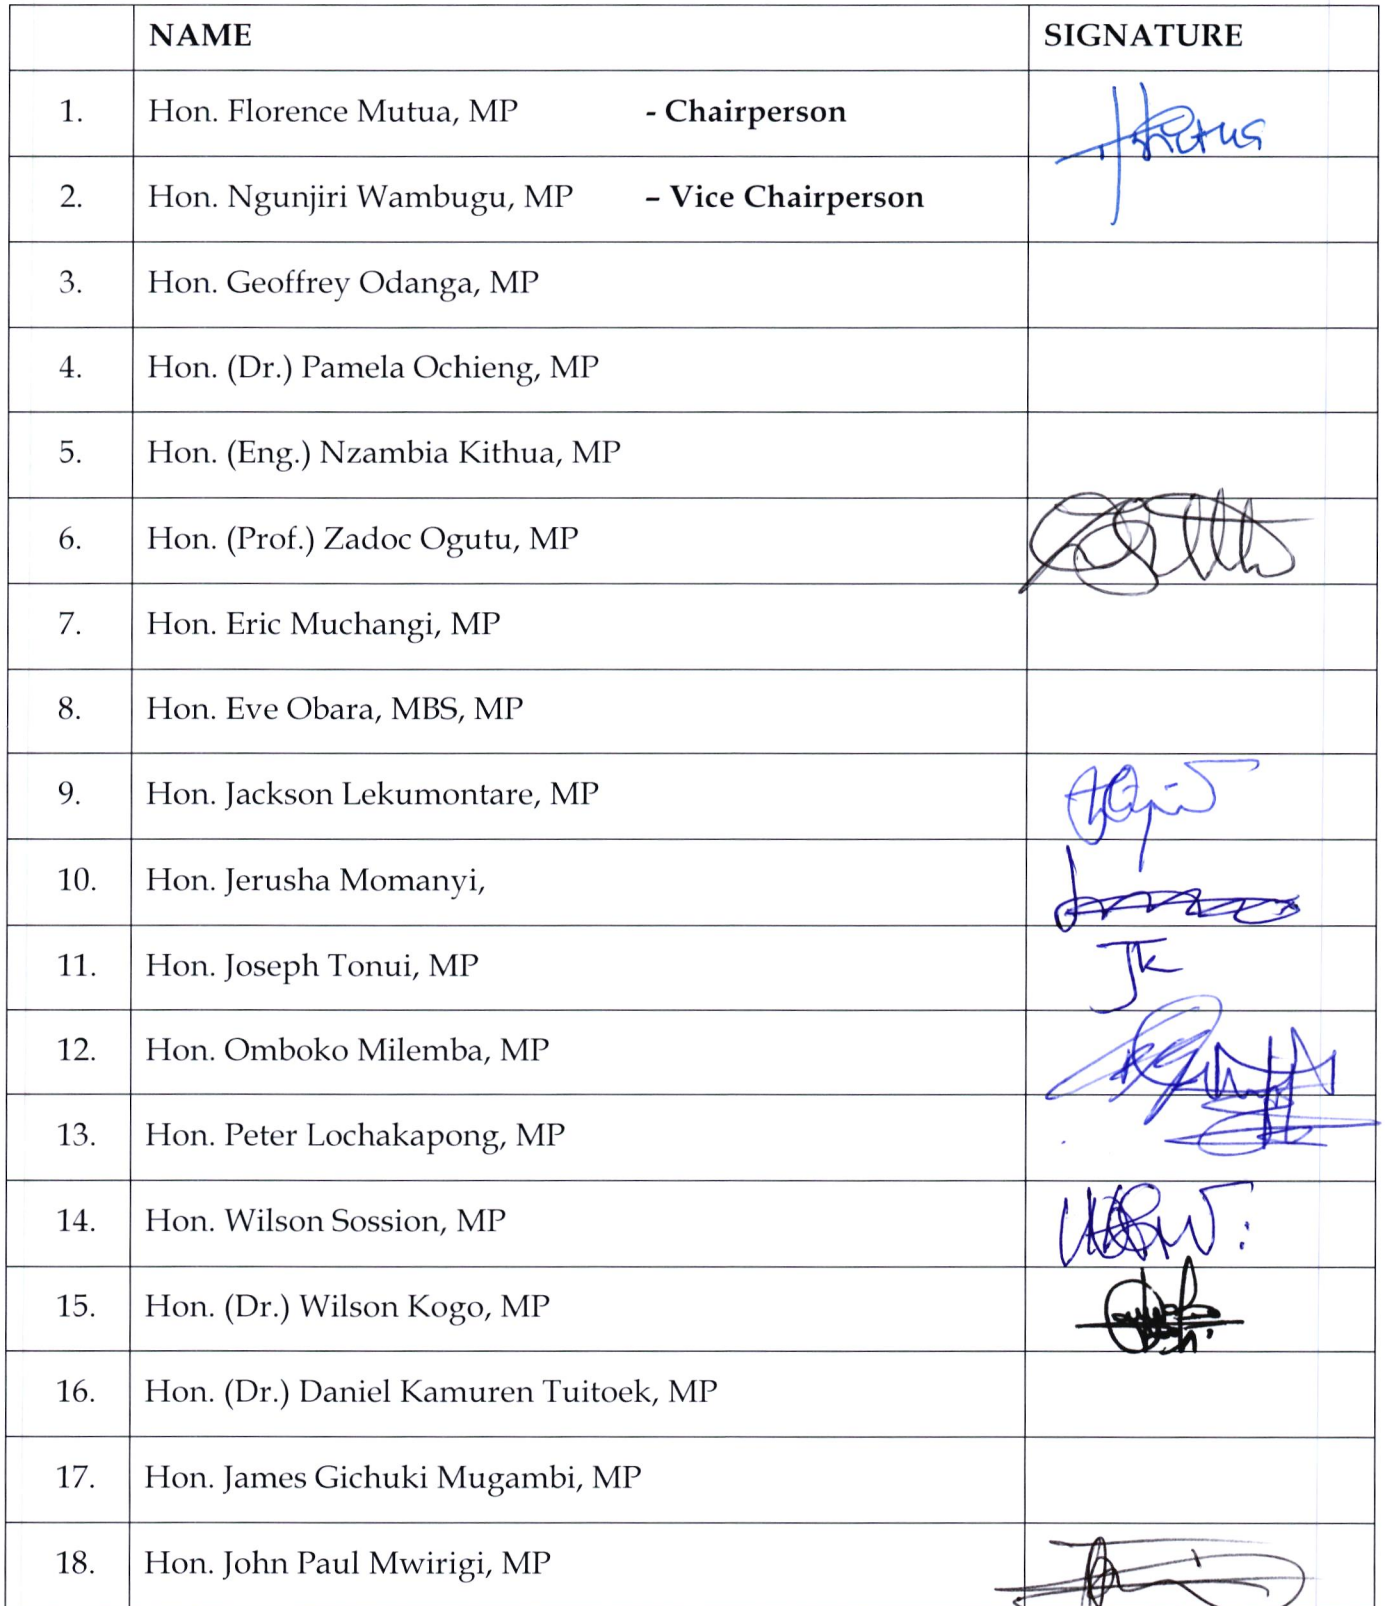 NAME SIGNATURE
1. Hon. Florence Mutua, MP - Chairperson
2. Hon. Ngunjiri Wambugu, MP – Vice Chairperson
3. Hon. Geoffrey Odanga, MP
4. Hon. (Dr.) Pamela Ochieng, MP
5. Hon. (Eng.) Nzambia Kithua, MP
6. Hon. (Prof.) Zadoc Ogutu, MP
7. Hon. Eric Muchangi, MP
8. Hon. Eve Obara, MBS, MP
9. Hon. Jackson Lekumontare, MP
10. Hon. Jerusha Momanyi,
11. Hon. Joseph Tonui, MP JK
12. Hon. Omboko Milemba, MP
13. Hon. Peter Lochakapong, MP
14. Hon. Wilson Sossion, MP
15. Hon. (Dr.) Wilson Kogo, MP
16. Hon. (Dr.) Daniel Kamuren Tuitoek, MP
17. Hon. James Gichuki Mugambi, MP
18. Hon. John Paul Mwirigi, MP